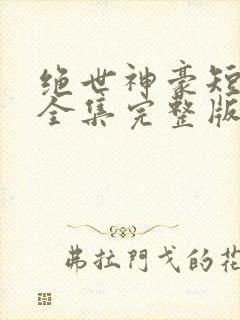 绝世神豪短
全集完整版
弗拉門戈的花